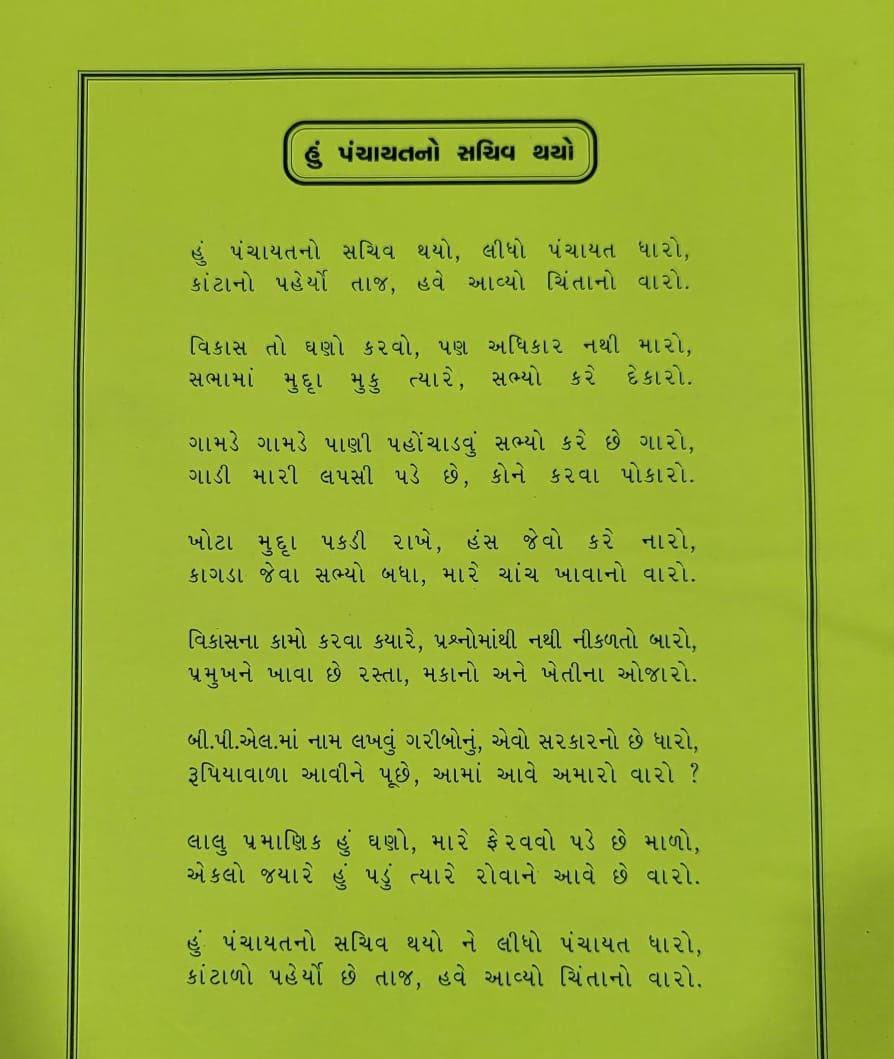 હું પંચાયતનો સચિવ થયો
હું પંચાયતનો સચિવ થયો, લીધો પંચાયત ધારો,
કાંટાનો પહેર્યો તાજ, હવે આવ્યો ચિંતાનો વારો.
વિકાસ તો ઘણો કરવો, પણ અધિકાર નથી મારો,
સભામાં મુદ્દા મુકુ ત્યારે, સભ્યો કરે દેકારો.
ગામડે ગામડે પાણી પહોંચાડવું સભ્યો કરે છે ગારો,
ગાડી મારી લપસી પડે છે, કોને કરવા પોકારો.
ખોટા મુદ્દા પકડી રાખે, હંસ જેવો કરે નારો,
કાગડા જેવા સભ્યો બધા, મારે ચાંચ ખાવાનો વારો.
વિકાસના કામો કરવા કયારે, પ્રશ્નોમાંથી નથી નીકળતો બારો,
પ્રમુખને ખાવા છે રસ્તા, મકાનો અને ખેતીના ઓજારો.
બી.પી.એલ.માં નામ લખવું ગરીબોનું, એવો સરકારનો છે ધારો,
રૂપિયાવાળા આવીને પૂછે, આમાં આવે અમારો વારો ?
લાલુ પ્રમાણિક હું ઘણો, મારે ફેરવવો પડે છે માળો,
એકલો જયારે હું પડું ત્યારે રોવાને આવે છે વારો.
હું પંચાયતનો સચિવ થયો ને લીધો પંચાયત ધારો,
કાંટાળો પહેર્યો છે તાજ, હવે આવ્યો ચિંતાનો વારો.